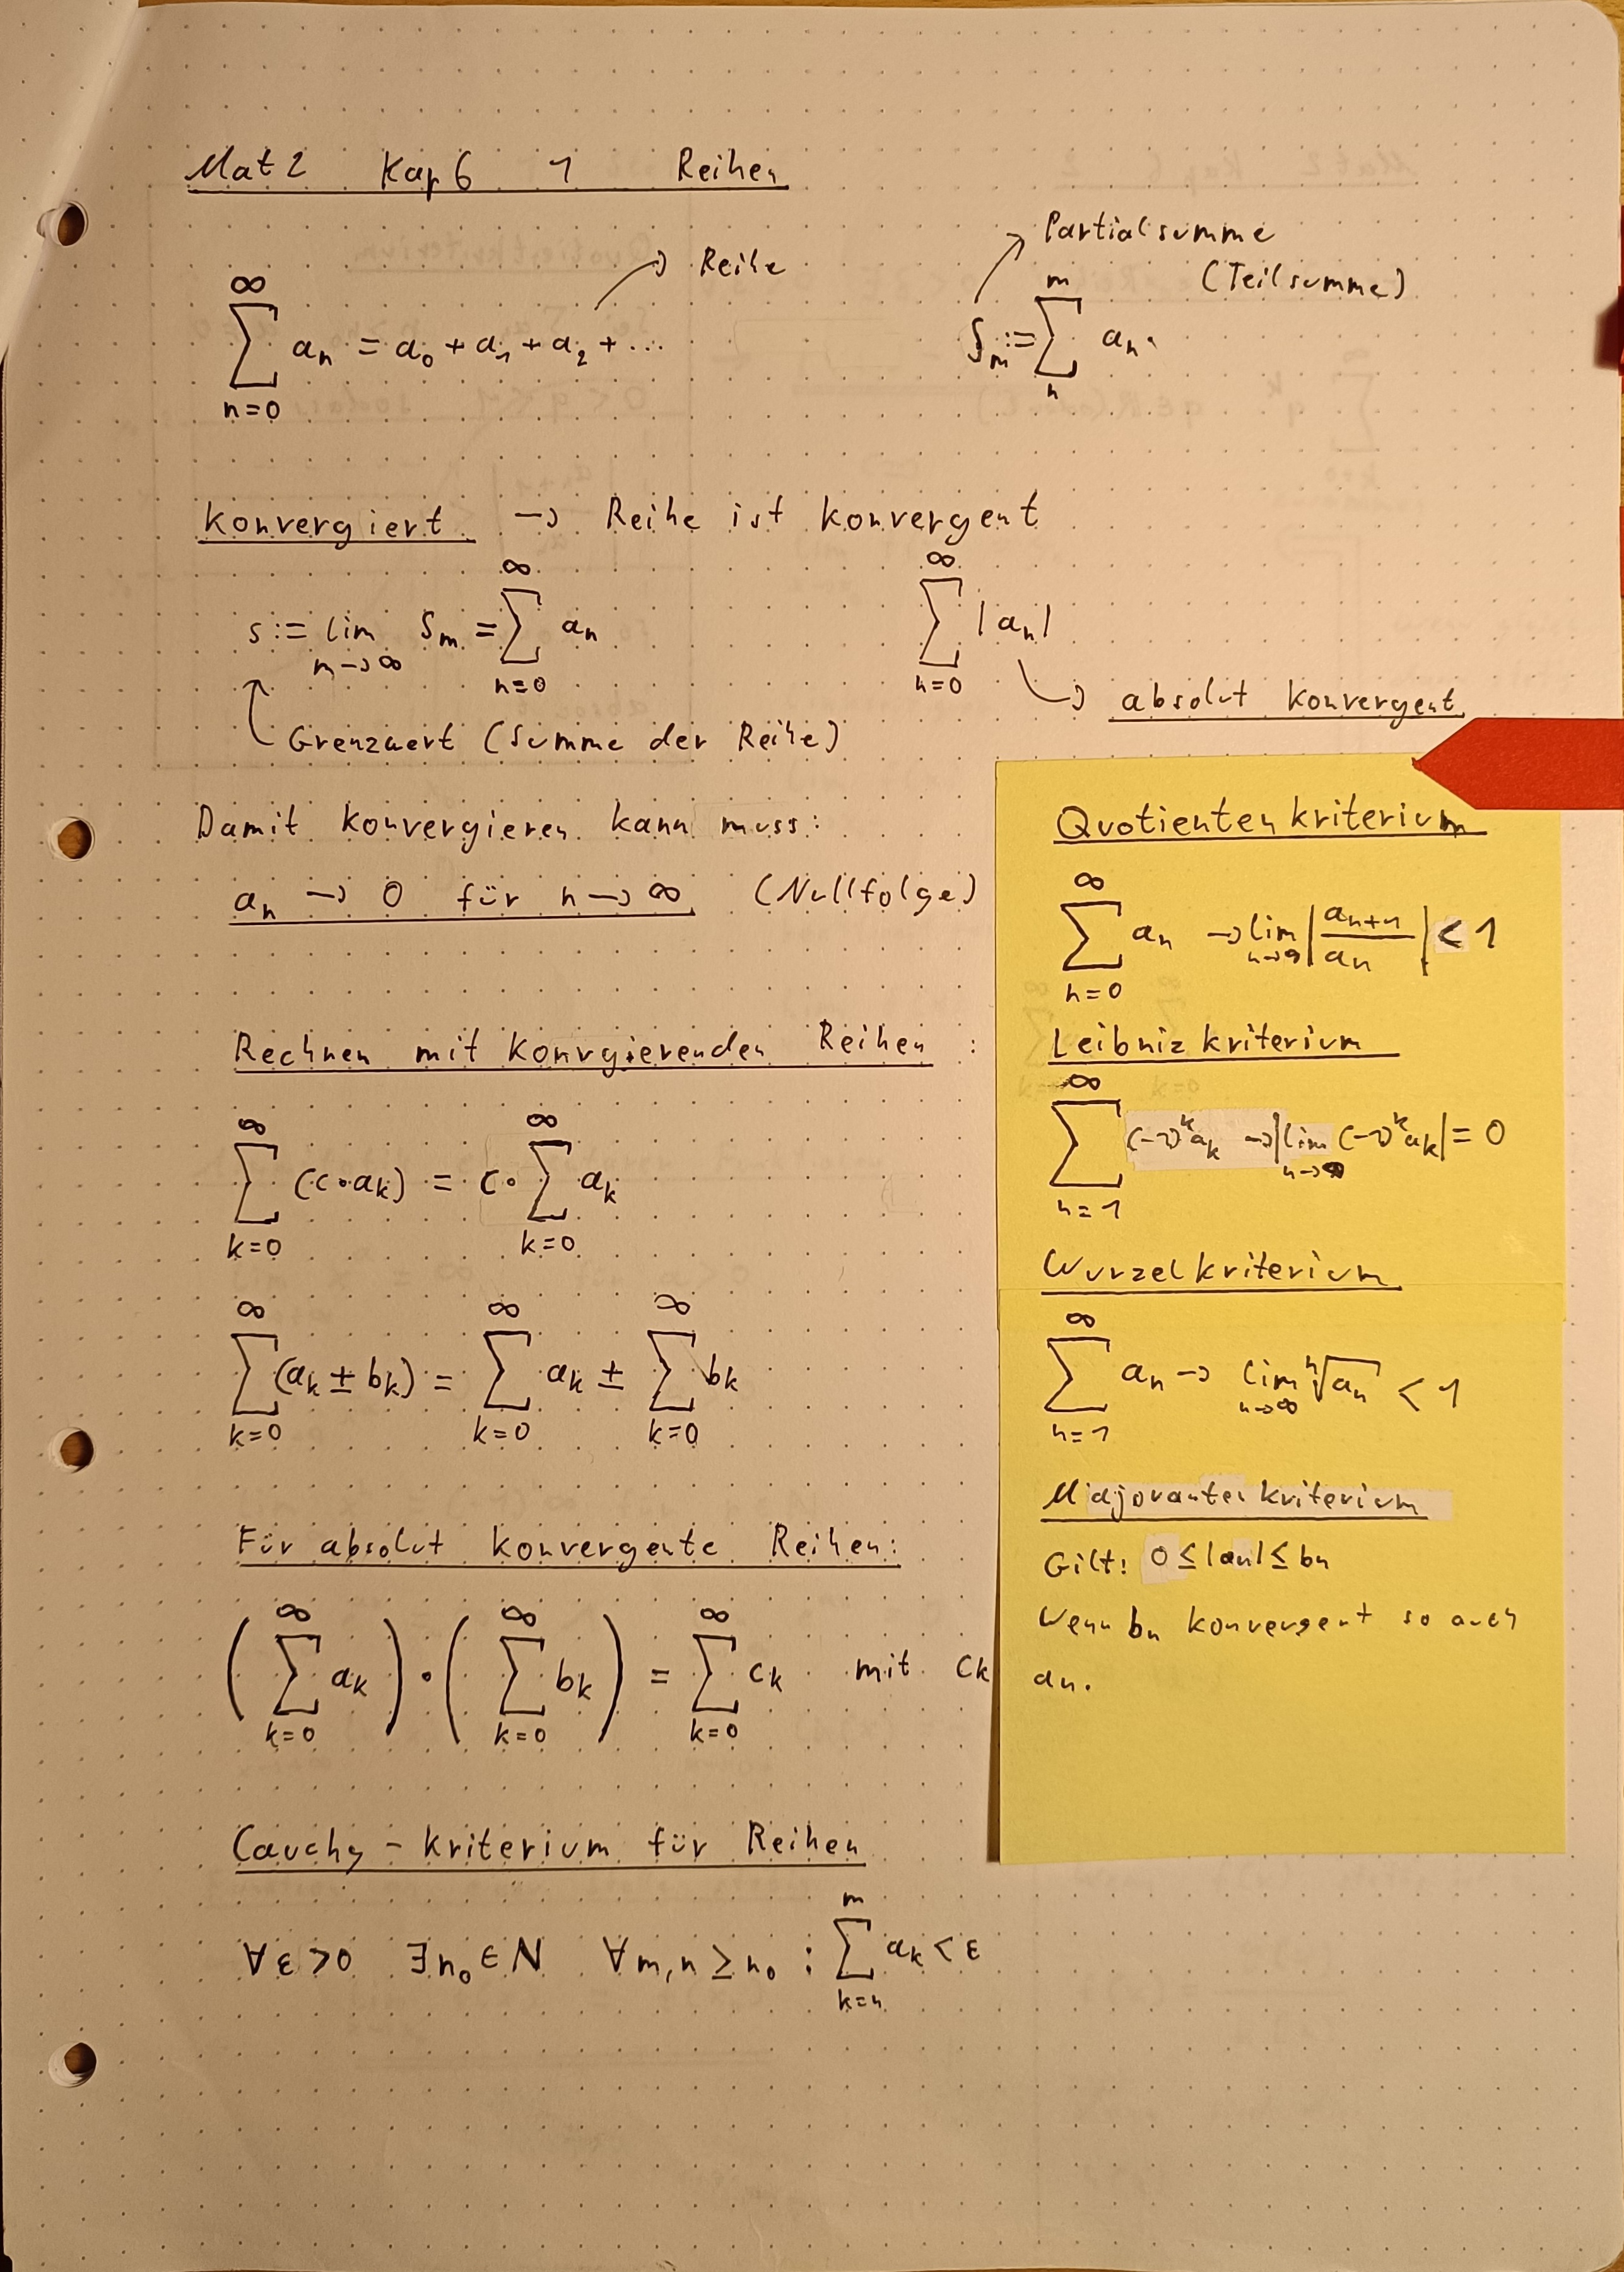 Mat 2 Kap 6 1 Reihen
∞ ∑ n=0 aₙ = a₀ + a₁ + a₂ + ...
→ Reihe
Partialsumme
(Teilsumme)
Sₘ := m ∑ n aₙ.
konvergiert → Reihe ist konvergent
s := lim m→∞ Sₘ = ∞ ∑ n=0 aₙ
∞ ∑ n=0 |aₙ|
→ absolut konvergent
Grenzwert (Summe der Reihe)
Damit konvergieren kann muss:
aₙ → 0 für n → ∞ (Nullfolge)
Rechnen mit konvgierenden Reihen :
∞ ∑ k=0 (c·aₖ) = c· ∞ ∑ k=0 aₖ
∞ ∑ k=0 (aₖ ± bₖ) = ∞ ∑ k=0 aₖ ± ∞ ∑ k=0 bₖ
Für absolut konvergente Reihen:
(∞ ∑ k=0 aₖ) · (∞ ∑ k=0 bₖ) = ∞ ∑ k=0 cₖ mit cₖ
Cauchy-kriterium für Reihen
∀ε>0 ∃n₀∈N ∀m,n ≥ n₀ : m ∑ k=n aₖ < ε
Quotientenkriterium
∞ ∑ n=0 aₙ → lim n→∞ |aₙ₊₁ / aₙ| < 1
Leibnizkriterium
∞ ∑ n=1 (-1)ᵏaₖ → |lim n→∞ (-1)ᵏaₖ| = 0
Wurzelkriterium
∞ ∑ n=1 aₙ → lim n→∞ ⁿ√aₙ < 1
Majorantenkriterium
Gilt: 0 ≤ |an| ≤ bn
Wenn bn konvergent so auch
an.